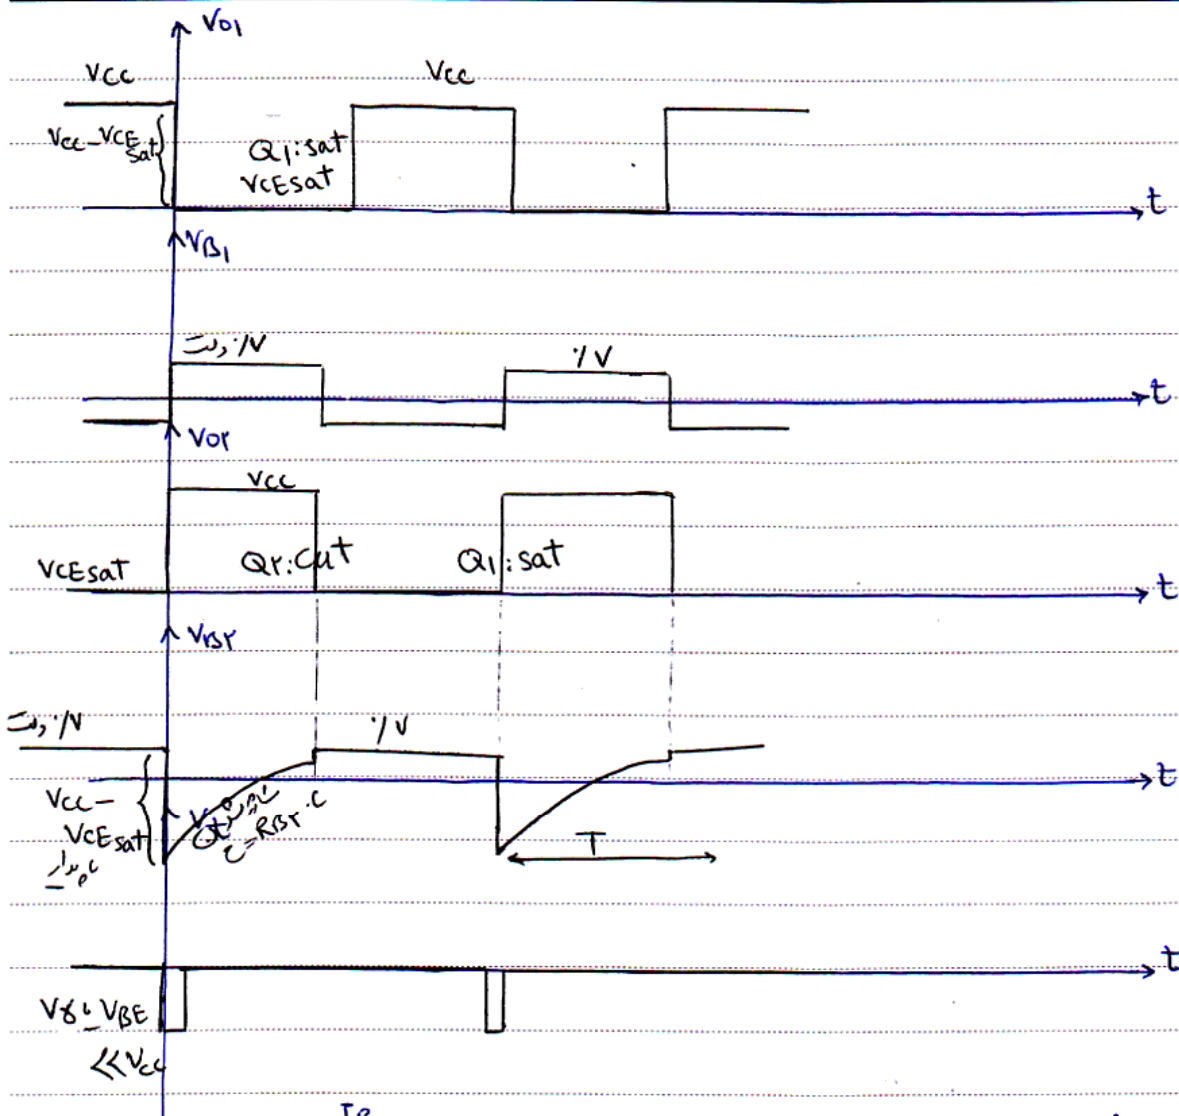 Vo1
Vcc
Vcc
Vcc-VCEsat
Q1:sat
VCEsat
t
VB1
۰/۷ ولت
۰/۷
t
Vo۲
Vcc
VCEsat
Q۲:cut
Q1:sat
t
VB۲
۰/۷ ولت
۰/۷
t
Vcc-
VCEsat
τ=RB۲.C
T
t
Vγ یا -VBE
<<Vcc